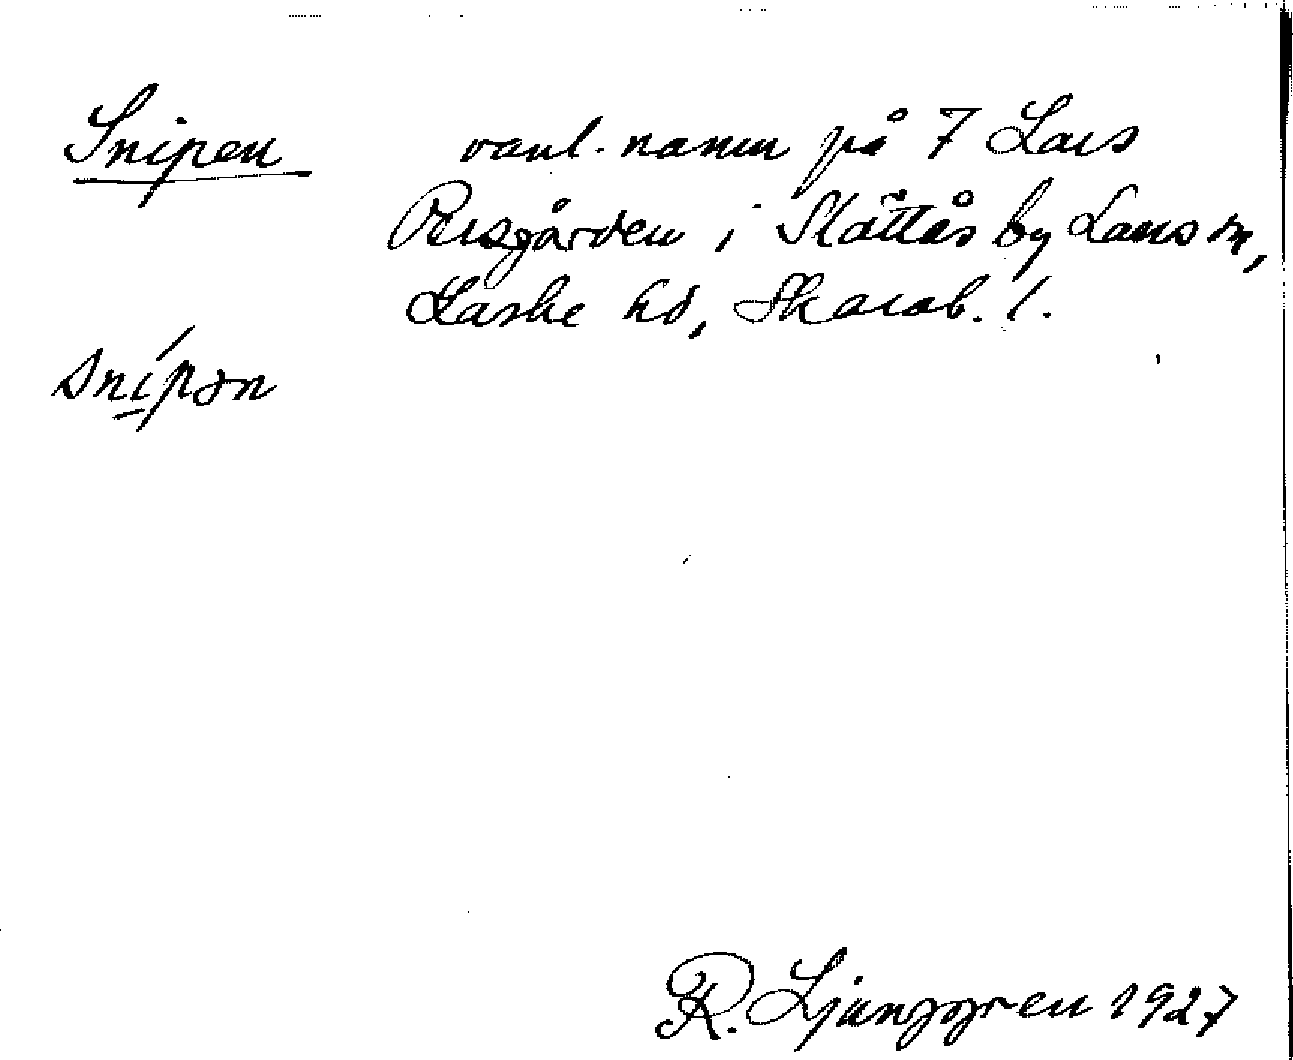 Snipen vanl. namn på 7 Lars
Persgården i Slättås by Laus sn,
Laske hd, Skarab. l.
snípən
R. Ljunggren 1927